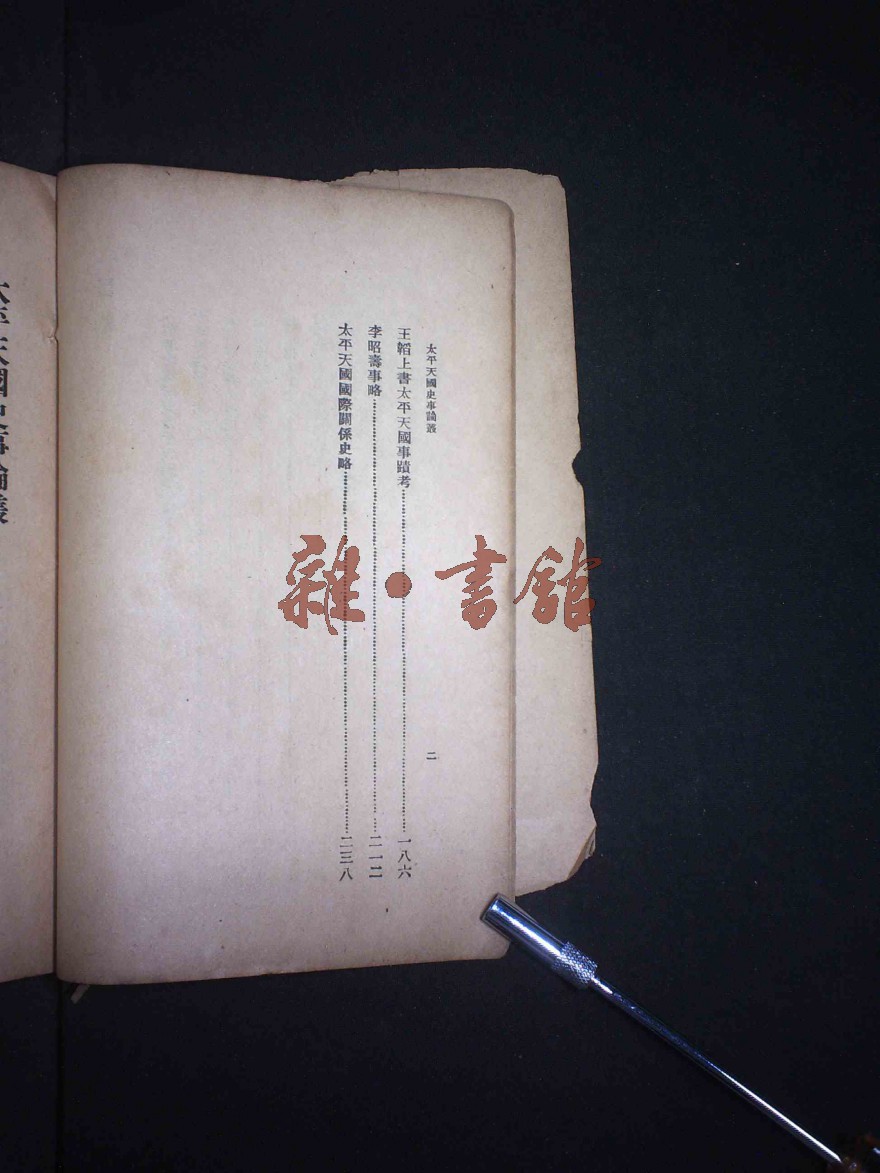 太平天國史事論叢
二
王韜上書太平天國事蹟考……一八六
李昭壽事略……二一二
太平天國國際關係史略……二三八
太平天國史事論叢
雜·書館